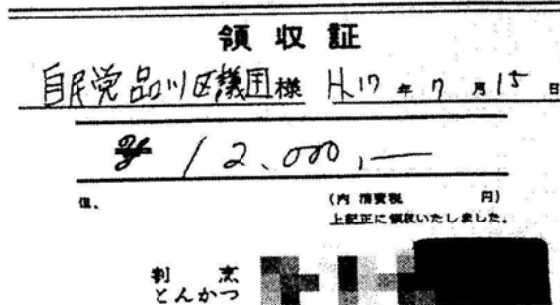 領収証
自民党品川区議団様 H17年7月15日
¥12,000,—
但、
(内 消費税 円)
上記正に領収いたしました。
割烹
とんかつ